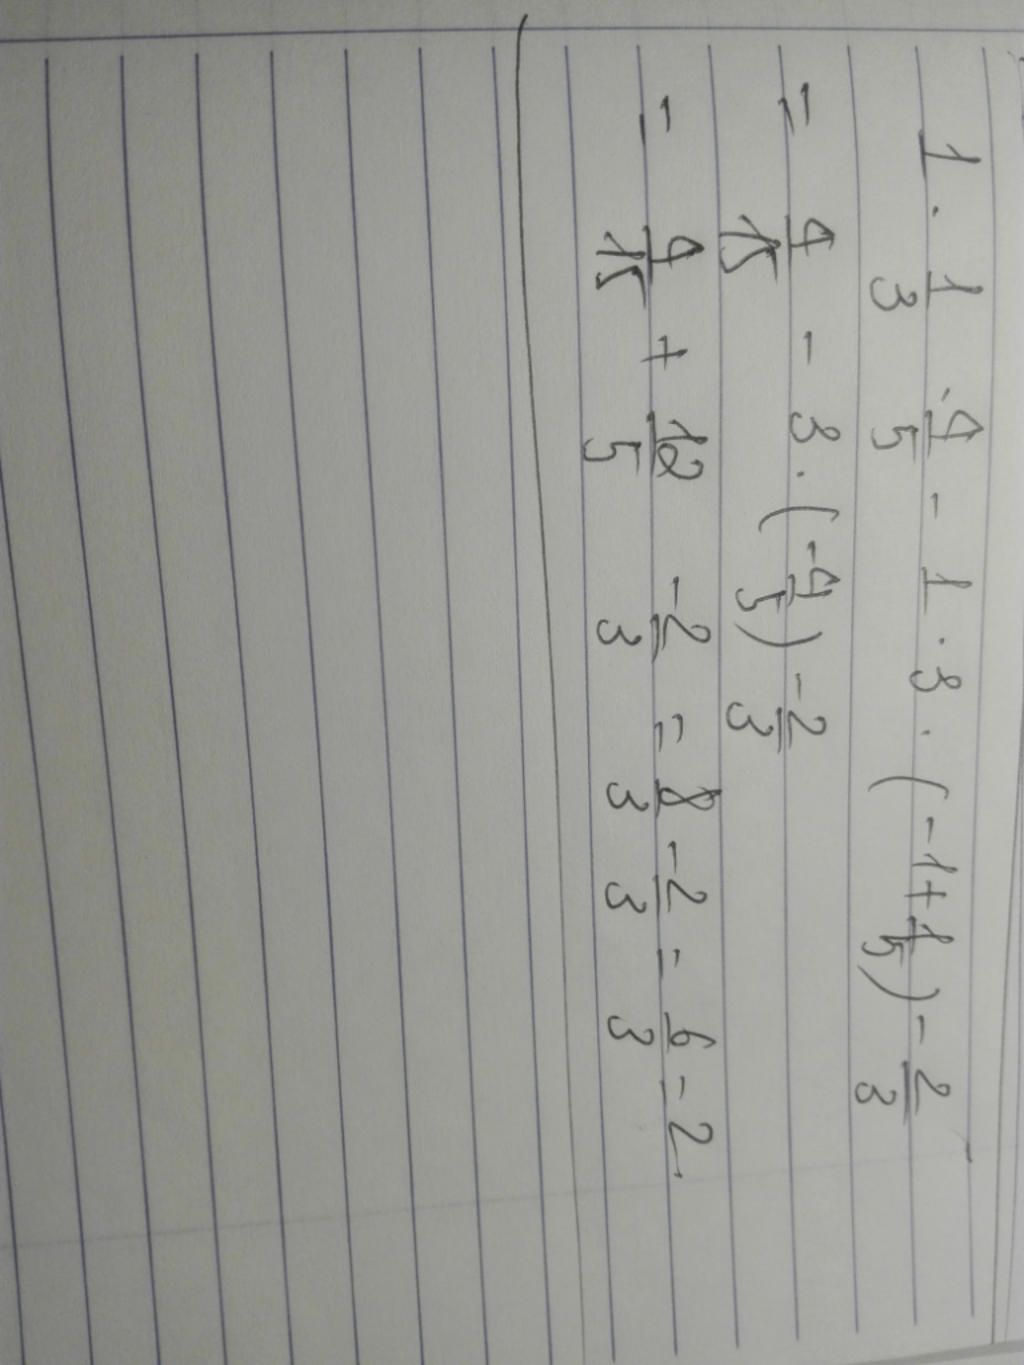 1 · 1/3 · 4/5 - 1 · 3 · (-1 + 1/5) - 2/3
= 4/15 - 3 · (-4/5) - 2/3
= 4/15 + 12/5 - 2/3 = 8/3 - 2/3 = 6/3 = 2